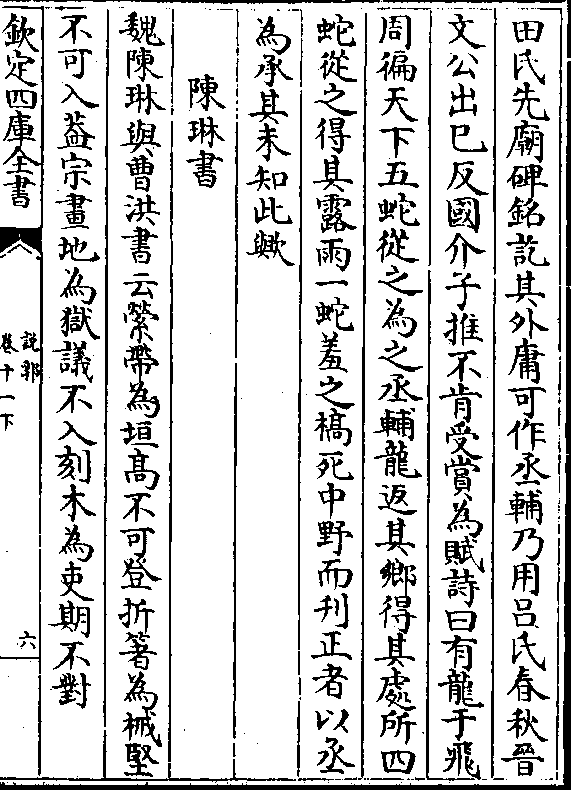 田氏先廟碑銘訖其外庸可作丞輔乃用吕氏春秋晉
文公出已反國介子推不肯受賞為賦詩曰有龍于飛
周徧天下五蛇從之為之丞輔龍返其鄉得其處所四
蛇從之得其露雨一蛇羞之槁死中野而刋正者以丞
為承其未知此歟
陳琳書
魏陳琳與曹洪書云縈帶為垣高不可登折箸為械堅
不可入葢宗畫地為獄議不入刻木為吏期不對
欽定四庫全書
說郛
卷十一下
六